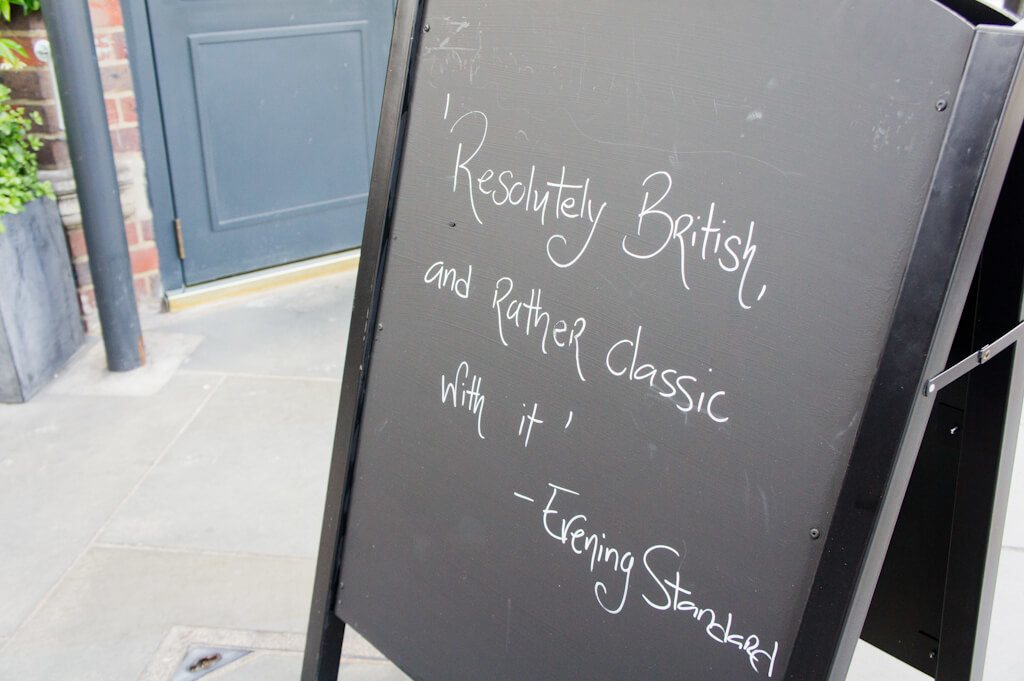 'Resolutely British,
and Rather Classic
with it'
- Evening Standard